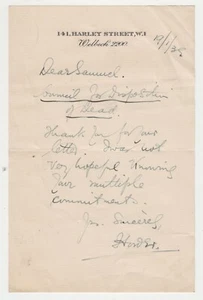 141, HARLEY STREET, W.1
Welbeck 2200.
Dear Samuel.
Council for Disposition
of Dead.
Thank you for your
letter. I was not
very hopeful knowing
your multiple
commitments.
Yrs. Sincerely,